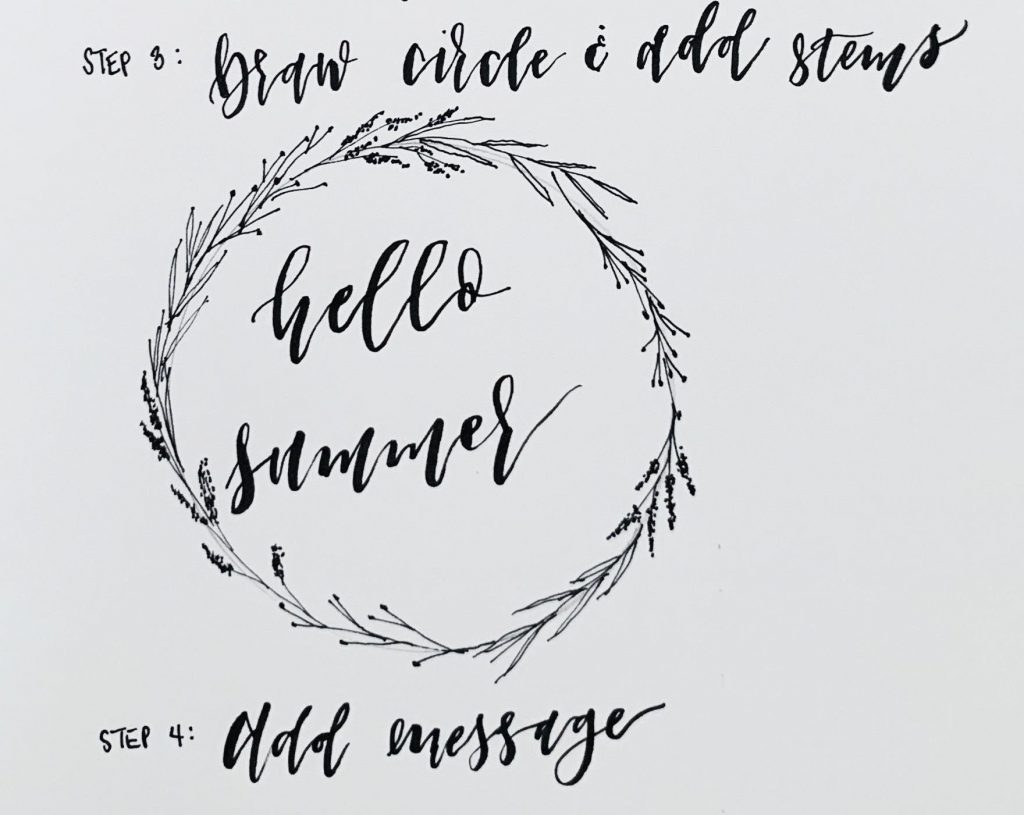 STEP 3: Draw circle & add stems
hello
summer
STEP 4: Add message